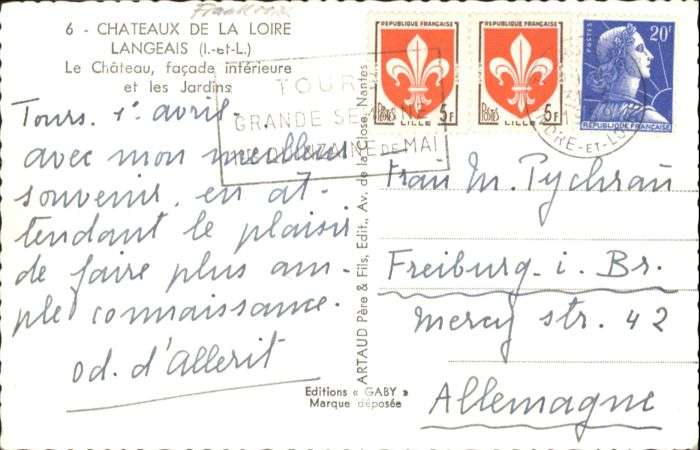 6 - CHATEAUX DE LA LOIRE
LANGEAIS (I.-et-L.)
Le Château, façade inférieure
et les Jardins
Tours. 1er avril.
avec mon meilleur
souvenir, en at-
tendant le plaisir
de faire plus am-
ple connaissance.
od. d'Allerit
Editions « GABY »
Marque déposée
ARTAUD Père & Fils, Edit., Av. de la Close, Nantes
TOURS
GRANDE SEMAINE
DE MAI
REPUBLIQUE FRANÇAISE
Postes
LILLE
5F
REPUBLIQUE FRANÇAISE
Postes
LILLE
5F
POSTES
20F
REPUBLIQUE FRANÇAISE
INDRE-ET-LOIRE
Frau M. Pychrau
Freiburg i. Br.
Mercy str. 42
Allemagne